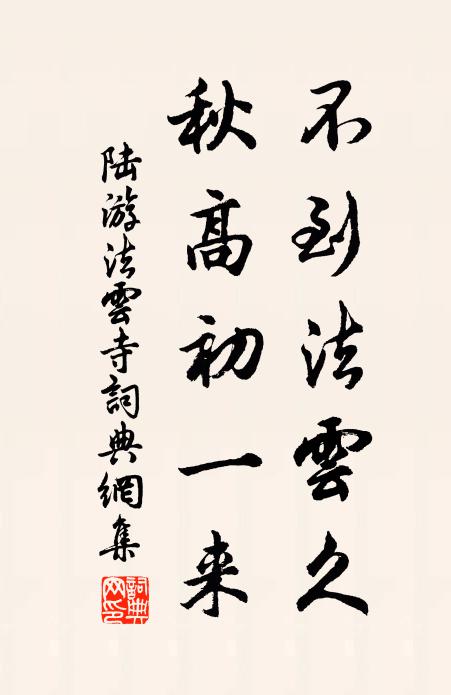 不到法雲久
秋高初一来
陆游法雲寺詞典網集
詞典网印